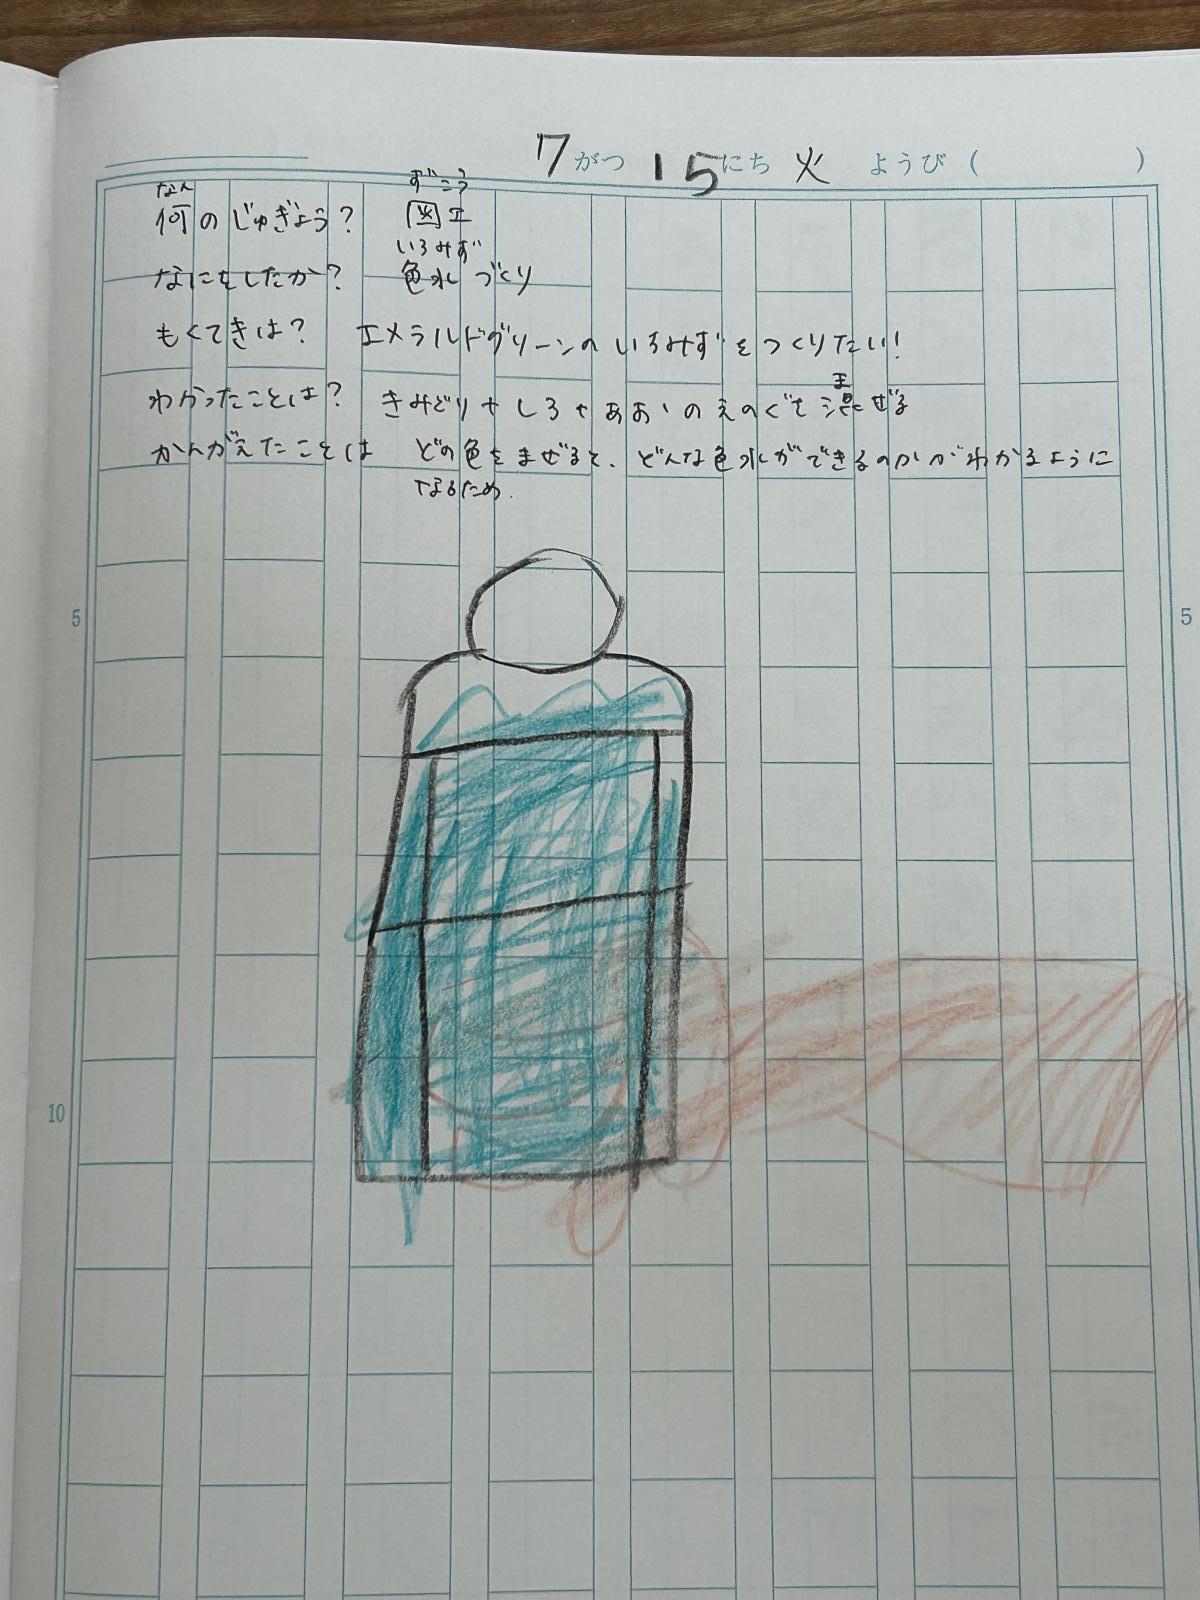 7がつ 15にち 火 ようび ( )
なん ずこう
何のじゅぎょう? 図工
いろみず
なにをしたか? 色水づくり
もくてきは? エメラルドグリーンのいろみずをつくりたい!
ま
わかったことは? きみどりやしろやあおいのえのぐを混ぜる
かんがえたことは どの色をまぜると、どんな色水ができるのかがわかるように
なるため.
5 5
10